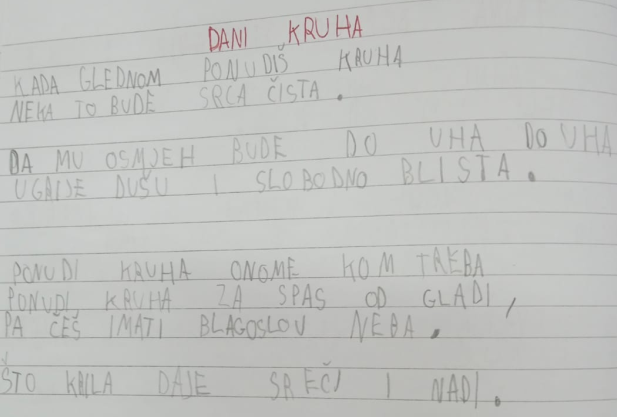 DANI KRUHA
KADA GLEDNOM PONUDIŠ KRUHA
NEKA TO BUDE SRCA ČISTA.
DA MU OSMJEH BUDE DO UHA DO UHA
UGRIJE DUŠU I SLOBODNO BLISTA.
PONUDI KRUHA ONOME KOM TREBA
PONUDI KRUHA ZA SPAS OD GLADI,
PA ČEŠ IMATI BLAGOSLOV NEBA.
ŠTO KRILA DAJE SREČI I NADI.